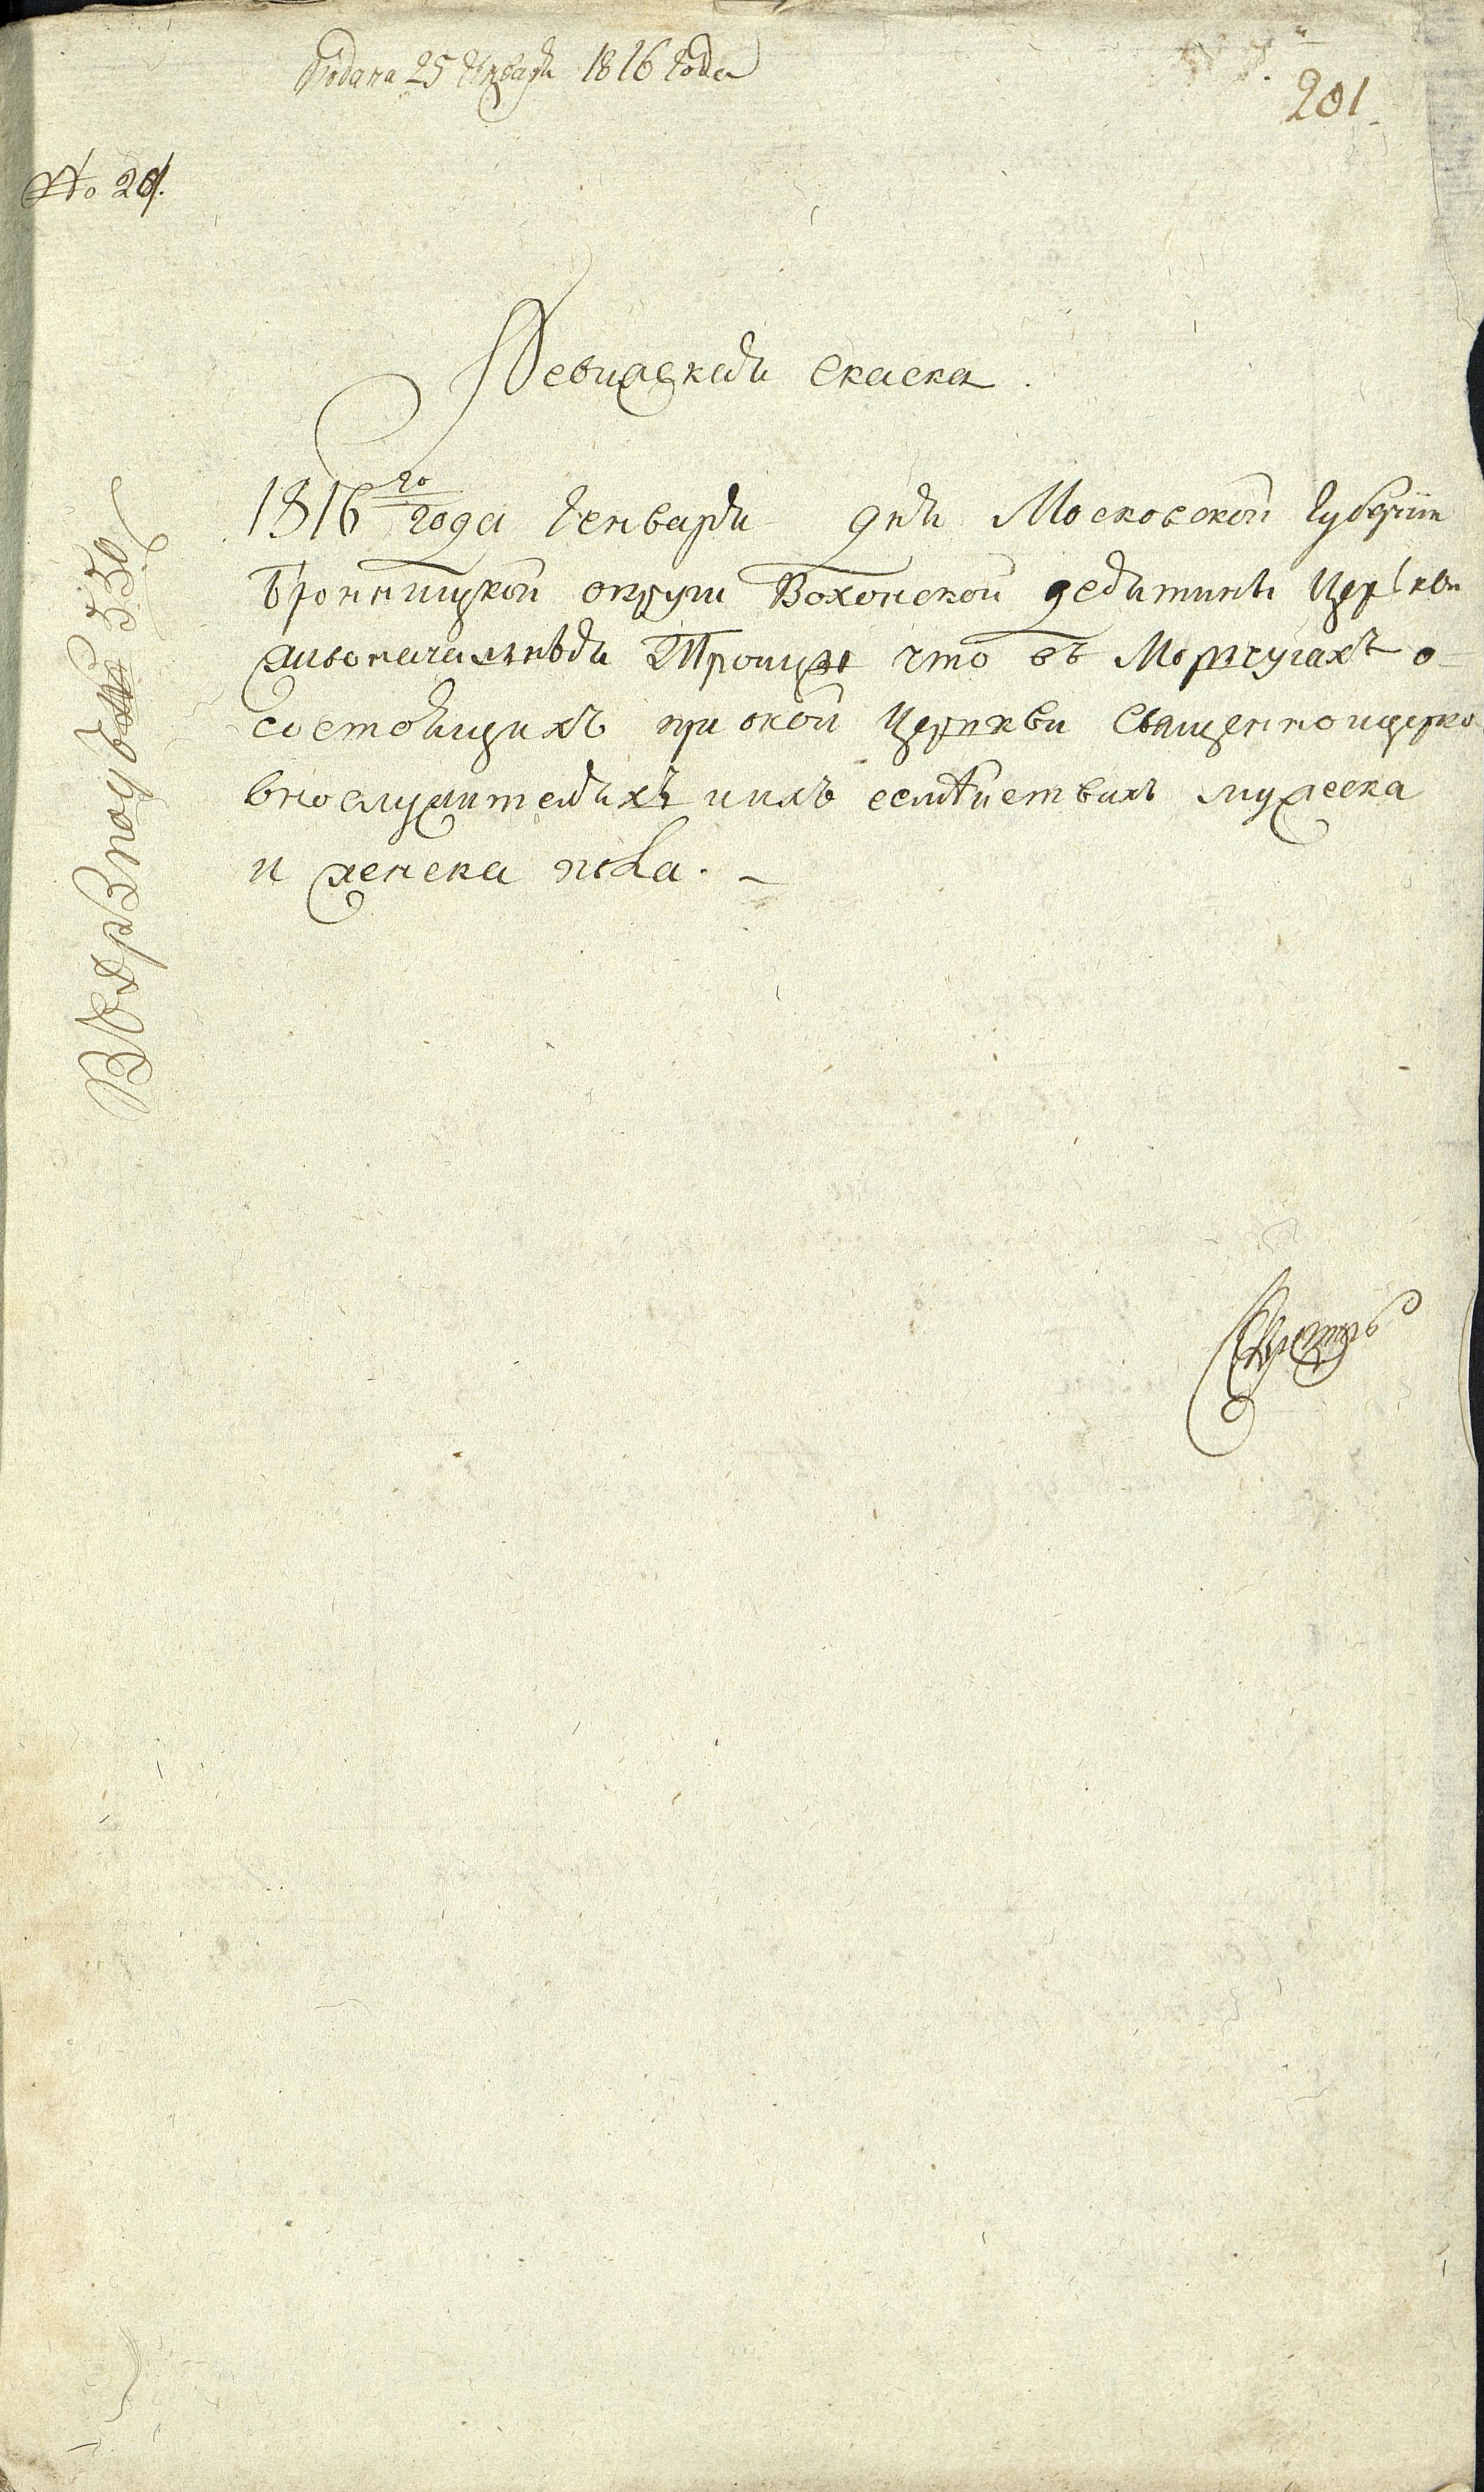 Подана 25 Января 1816 года
201
№ 20
Ревиская скаска.
1816 го года Генваря дня Московской губернiи
Бронницкой округи Вохонской десятины Церкви
живоначалныя Троицы что въ Моржугахъ о
состоящихъ при оной Церкви священноцерко
внослужителяхъ ихъ семѣйствахъ мужеска
и женска пола. –
350